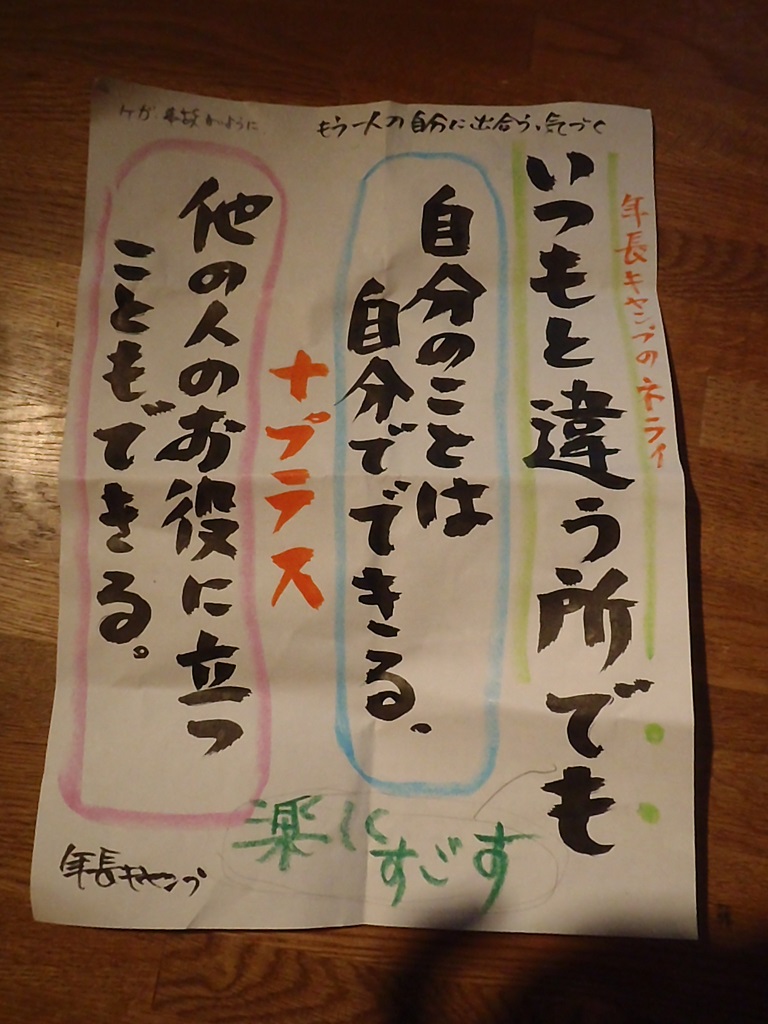 年長キャンプのネライ
もう一人の自分に出合う、気づく
いつもと違う所でも
自分のことは
自分でできる。
+プラス
他の人のお役に立つ
こともできる。
楽しく
すごす
ケガ
ように
年長キャンプ